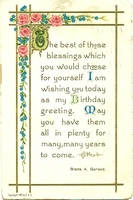 The best of those
blessings which
you would choose
for yourself I am
wishing you today
as my Birthday
greeting. May
you have them
all in plenty for
many, many years
to come.